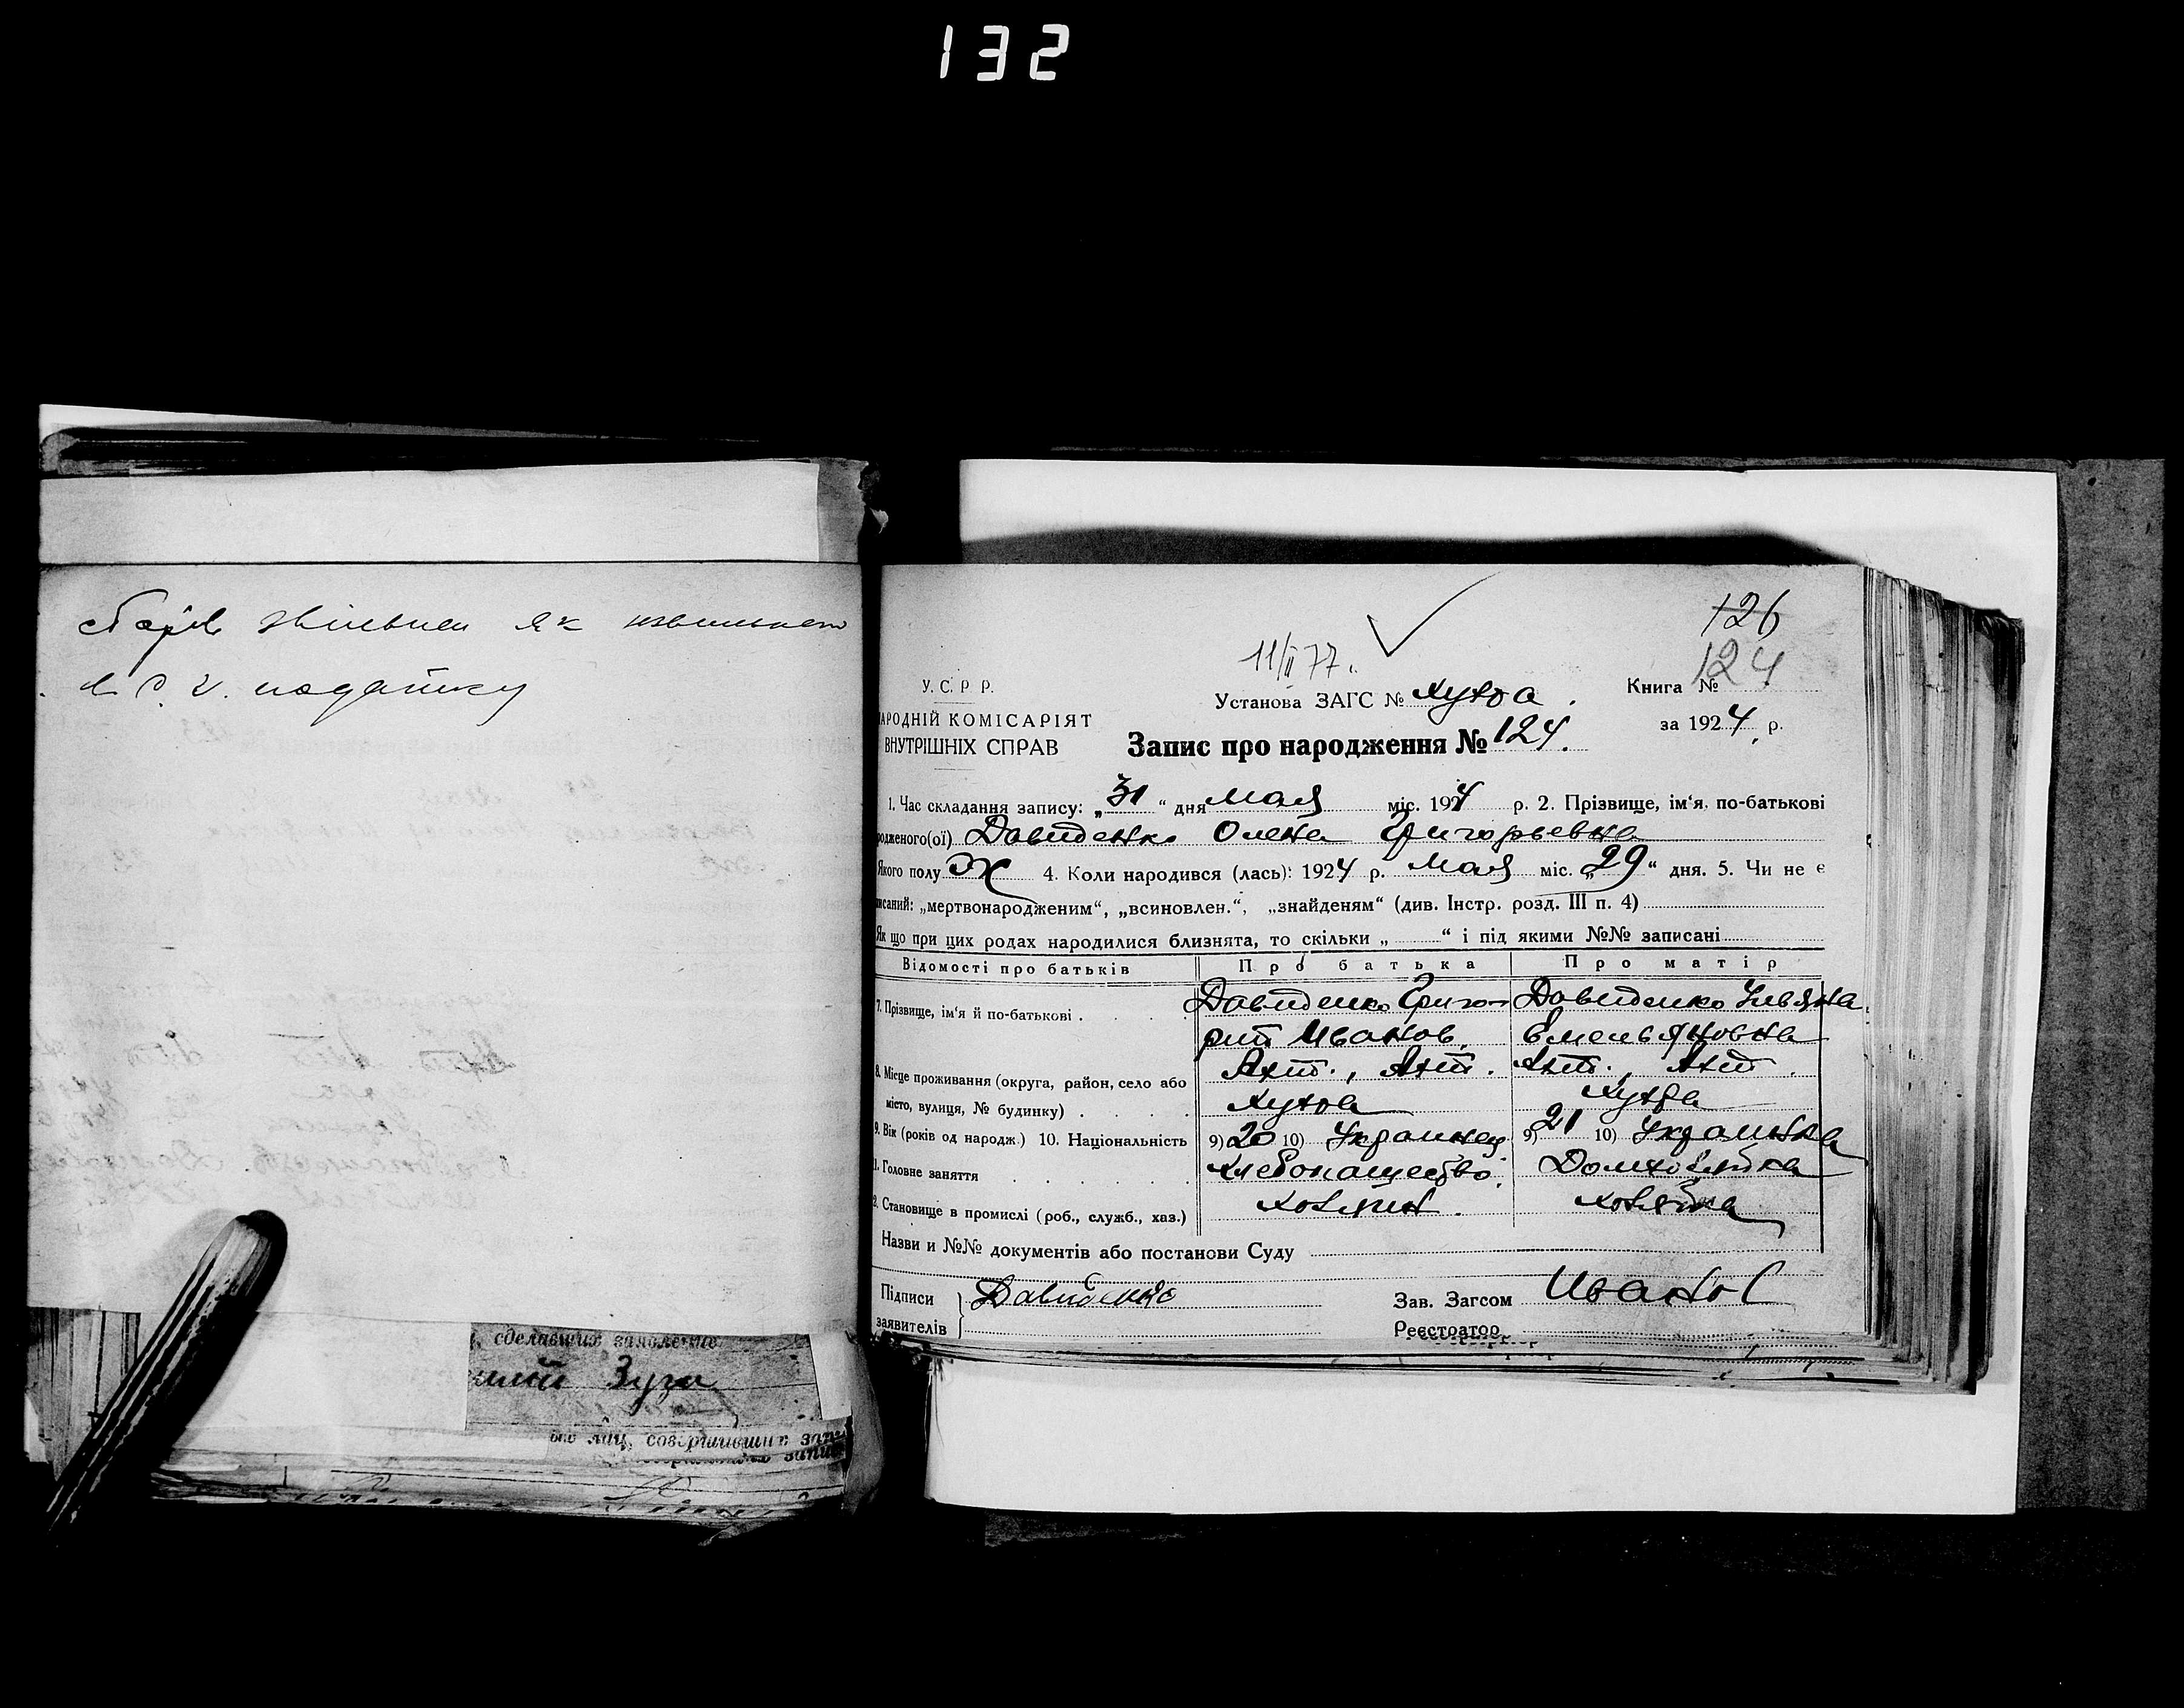 132
зборів звільнен як
податку
сделавших заявление
Зуга
лиц, совершивших
126
124
11/II 77.
У. С. Р. Р.
Установа ЗАГС №
Книга №
АРОДНІЙ КОМІСАРІЯТ
за 1924 р.
ВНУТРІШНІХ СПРАВ
Запис про народження № 124.
1. Час складання запису: „31“ дня Мая міс. 1924 р. 2. Прізвище, ім‘я, по-батькові
родженого(ої) Давиденко Олена Григорьевна
Якого полу Ж 4. Коли народився (лась): 1924 р. Мая міс. „29“ дня. 5. Чи не є
писаний: „мертвонародженим“, „всиновлен.“, „знайденям“ (див. Інстр. розд. III п. 4)
Як що при цих родах народилися близнята, то скільки „ “ і під якими №№ записані
Відомості про батьків Про батька Про матір
7. Прізвище, ім‘я й по-батькові . Давиденко Григо- Давиденко Ульяна
рий Иванов. Емельяновна
8. Місце проживання (округа, район, село або Ахт., Ахт. Ахт., Ахт.
місто, вулиця, № будинку)
9. Вік (років од народж.) 10. Національність 9) 20 10) Украинец 9) 21 10) Украинка
1. Головне заняття Хлебопашество. Домхозяйка
2. Становище в промислі (роб., служб., хаз.) хозяин. хозяйка
Назви и №№ документів або постанови Суду
Підписи Давиденко Зав. Загсом Иванов
заявителів Реєстратор